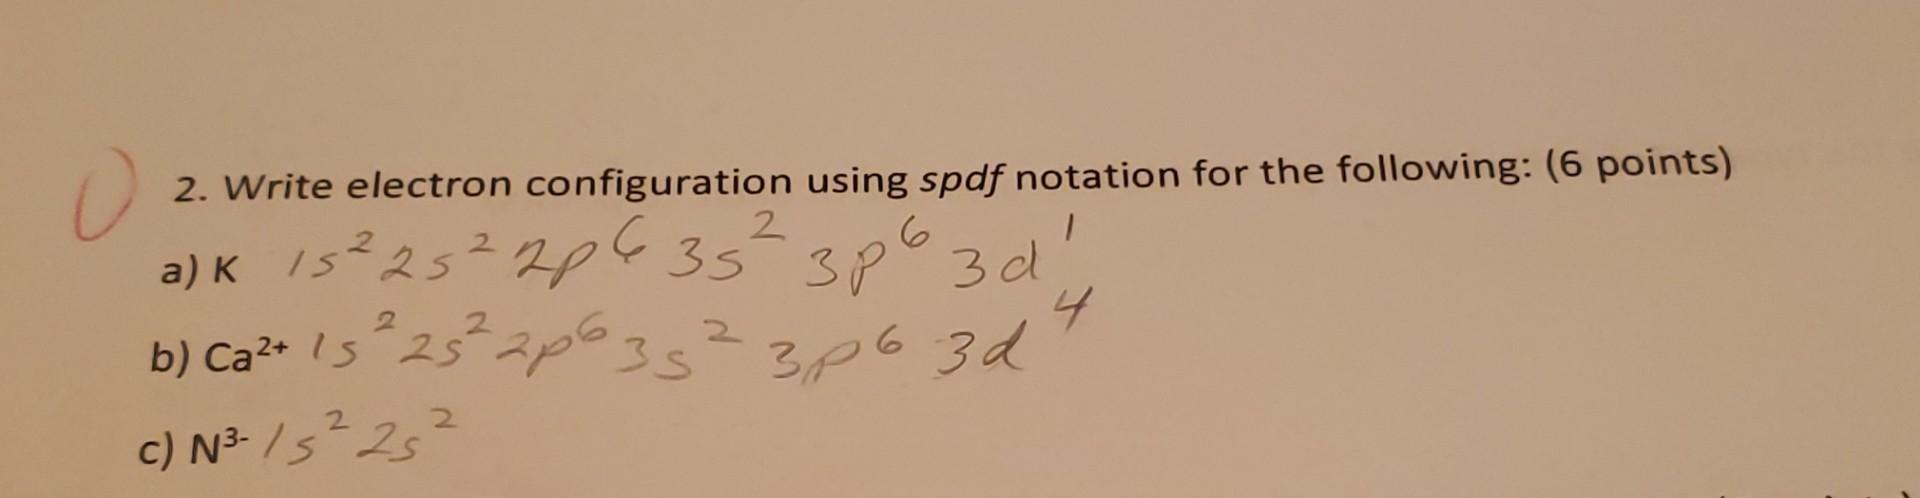 0 2. Write electron configuration using spdf notation for the following: (6 points)
a) K 1s² 2s² 2p⁶ 3s² 3p⁶ 3d¹
b) Ca²⁺ 1s² 2s² 2p⁶ 3s² 3p⁶ 3d⁴
c) N³⁻ 1s² 2s²